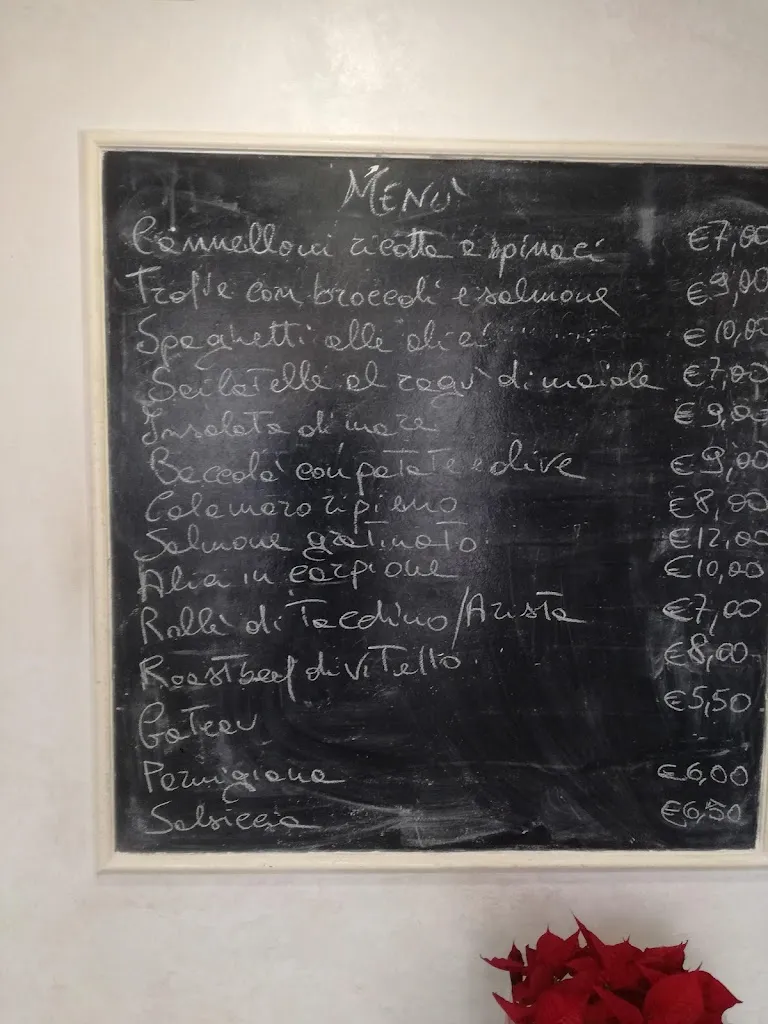 MENÙ
Cannelloni ricotta e spinaci €7,00
Trofie con broccoli e salmone €9,00
Spaghetti alle alici €10,00
Scilatelle al ragù di maiale €7,00
Insalata di mare €9,00
Baccalà con patate e olive €9,00
Calamaro ripieno €8,00
Salmone gratinato €12,00
Alici in carpione €10,00
Rollè di Tacchino/Arista €7,00
Roastbeef di viTello €8,00
Gateau €5,50
Parmigiana €6,00
Salsiccia €6,50